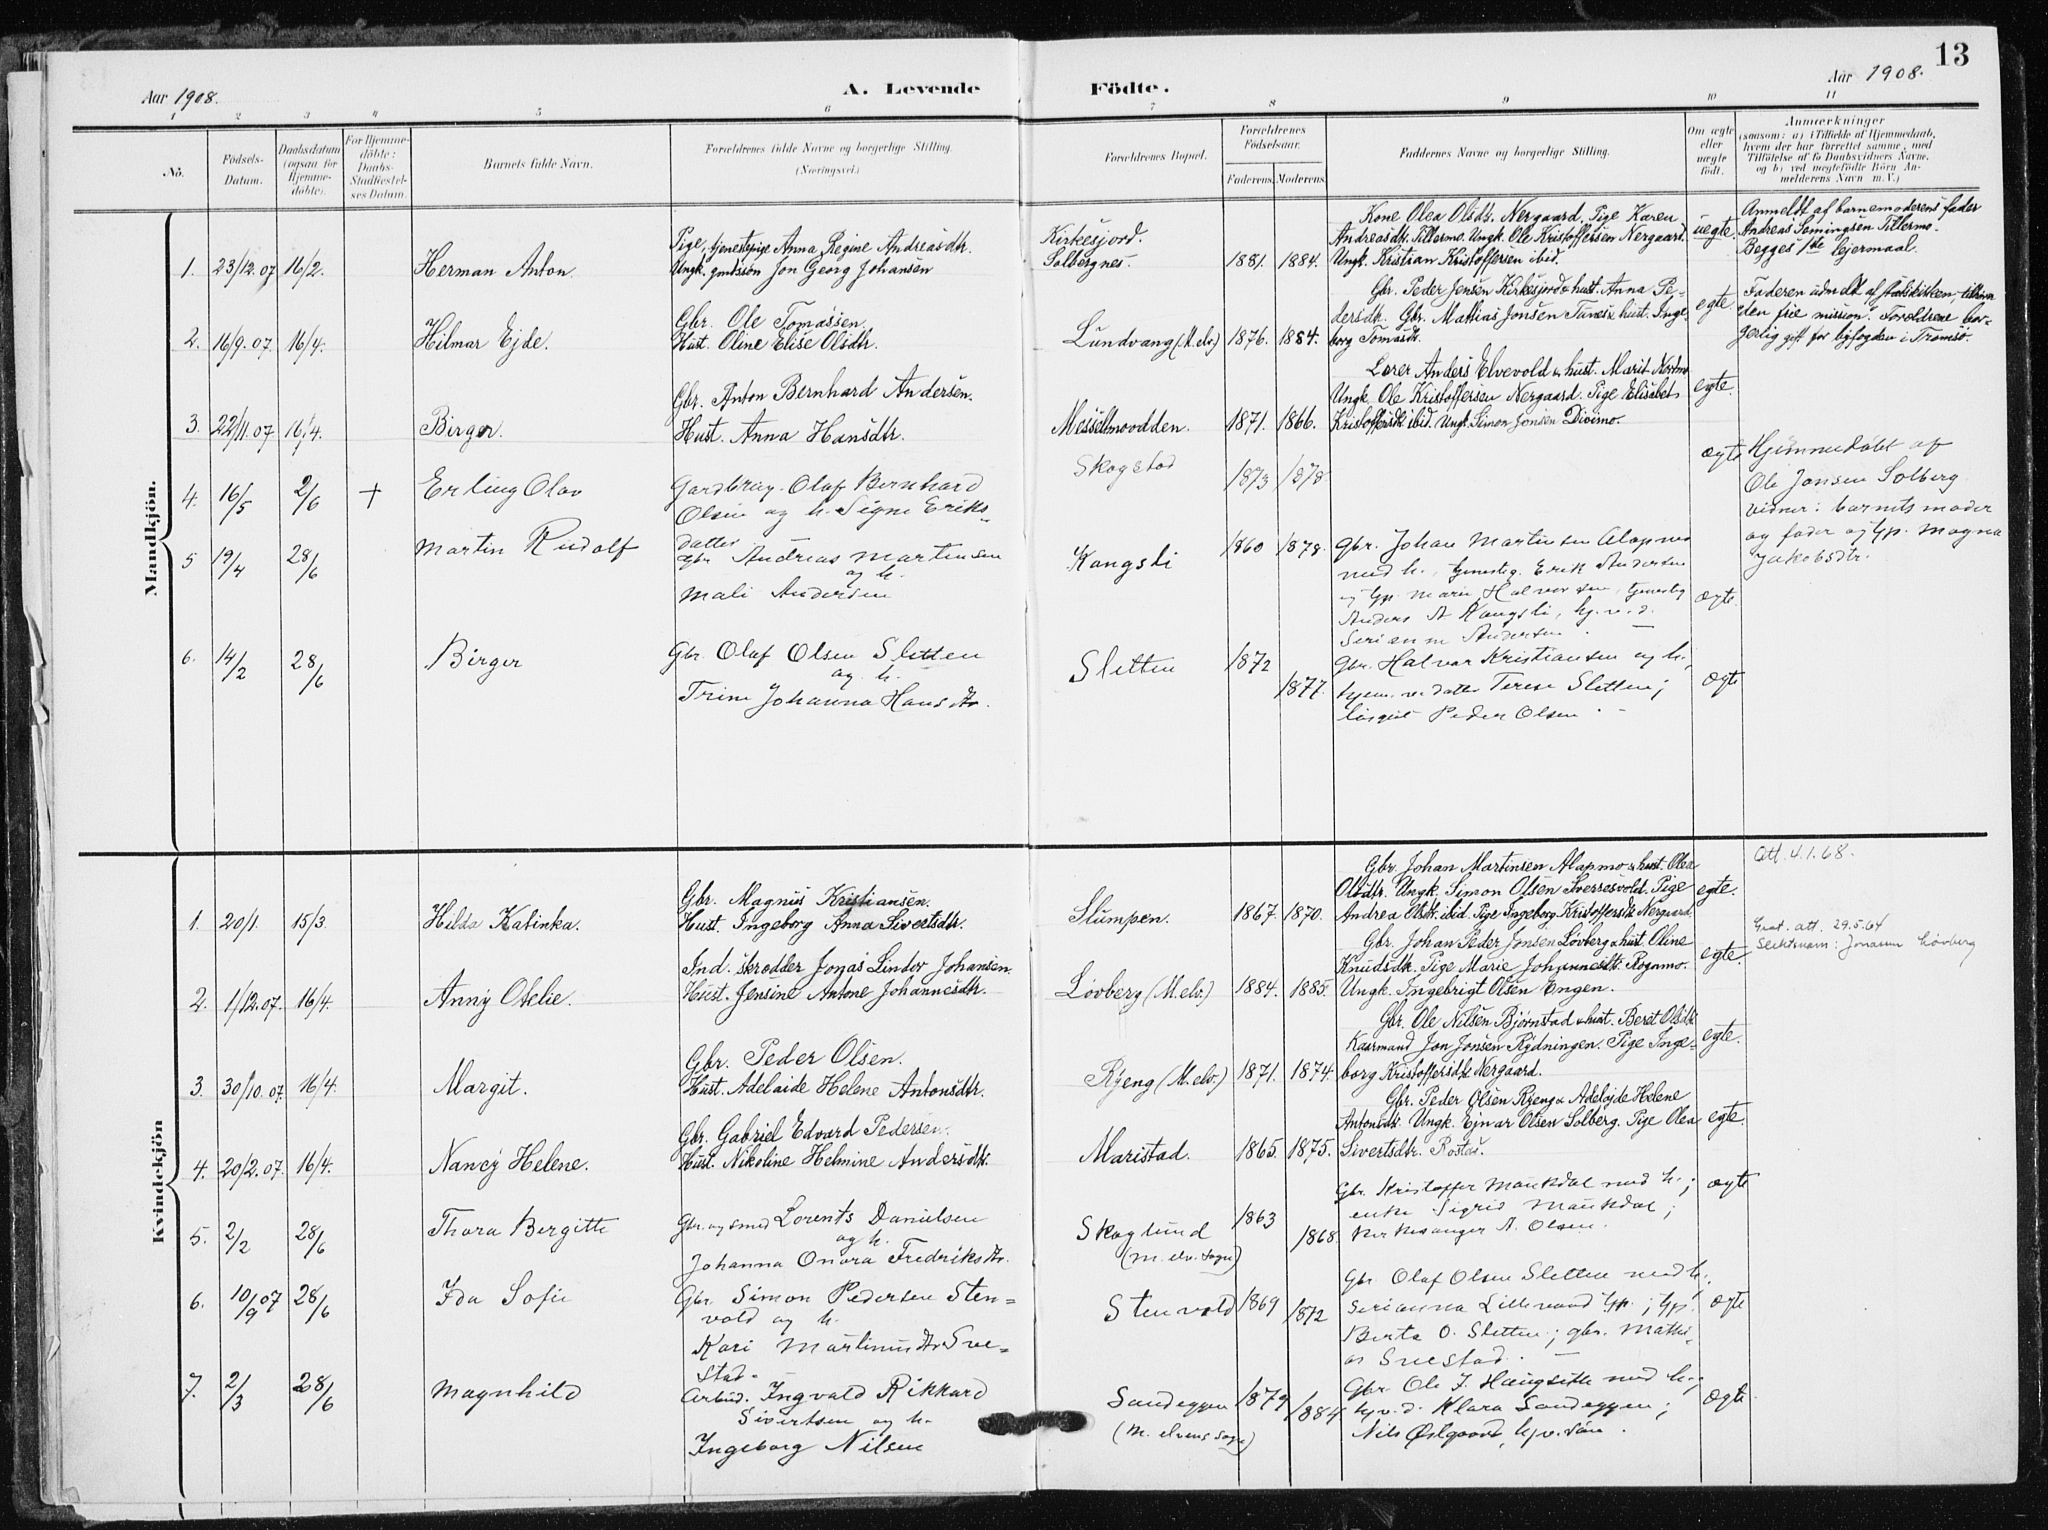 13
Aar 1908.
A. Levende
Födte.
Aar 1908.
1 2 3 4 5 6 7 8 9 10 11
No.
Födsels-
Datum.
Daabsdatum
(ogsaa for
Hjemme-
döbte).
For Hjemme-
döbte:
Daabs-
Stadfæstel-
ses Datum.
Barnets fulde Navn.
Forældrenes fulde Navne og borgerlige Stilling.
(Næringsvei.)
Forældrenes Bopæl.
Forældrenes
Födselsaar.
Faderens. Moderens.
Faddernes Navne og borgerlige Stilling.
Om ægte
eller
uægte
födt.
Anmærkninger
(saasom: a) i Tilfælde af Hjemmedaab,
hvem der har forrettet samme, med
Tilföielse af to Daabsvidners Navne,
og b) ved uægtefödte Börn An-
melderens Navn m. V.)
Mandkjön.
1. 23/12.07 16/2. Herman Anton.
Pige, tjenestepige Anna Regine Andreasdtr.
Ungk. gmdssøn Jon Georg Johansen
Kirkesjord.
Solbergnes.
1881. 1884.
Kone Olea Olsdtr. Nergaard. Pige Karen
Andreasdtr. Tillermo. Ungk. Ole Kristoffersen Nergaard.
Ungk. Kristian Kristoffersen ibid.
uegte.
Anmeldt af barnemoderens fader
Andreas Somingsen Tillermo.
Begges 1ste lejermaal.
2. 16/9.07 16/4. Hilmar Ejde.
Gbr. Ole Tomassen.
Hust. Oline Elise Olsdtr.
Lundvang (M.elv.)
1876. 1884.
Gbr. Peder Jensen Kirkesjord & hust. Anna Pe-
dersdtr. Gbr. Mathias Jonsen Tunes & hust. Inge-
borg Tomasdtr.
egte.
Faderen udmeldt af statskirken, tilhør
den frie mission. Forældrene bor-
gerlig gift for byfogden i Tromsø.
3. 22/11.07 16/4. Birger.
Gbr. Anton Bernhard Andersen.
Hust. Anna Hansdtr.
Messeltmoodden.
1871. 1866.
Lærer Anders Elvevold & hust. Marit Nordmo
Ungk. Ole Kristoffersen Nergaard. Pige Elisabet
Kristoffersdtr. ibid. Ungk. Simon Jonsen Divimo.
egte.
4. 16/5 2/6 + Erling Olav
Gardbrug. Olaf Bernhard
Olsen og h. Signe Eriks-
datter
Skogstad
1873 1878
ægte
Hjemmedøbt af
Ole Jonsen Solberg
vidner: barnets moder
og fader og tjp. Magna
Jakobsdtr.
5 19/4 28/6 Martin Rudolf
gbr Andreas Martinsen
og h.
Mali Andersen
Kongsli
1860 1878.
gbr. Johan Martinsen Alapmo
med h., tjenestg. Erik Andersen
og tjp. Marie Halvorsen, tjenestg
Anders A Kongsli, hj.v.d.
Serianne Andersen.
ægte.
6. 14/2 28/6 Birger
Gbr. Olaf Olsen Sletten
og h.
Trine Johanna Hansdtr.
Sletten
1872
1877.
gbr. Halvar Kristiansen og h.,
hjem. v. datter Terese Sletten;
Peder Olsen.
ægte
Kvindekjön
1. 20/1. 15/3. Hilda Katinka.
Gbr. Magnus Kristiansen.
Hust. Ingeborg Anna Sivertsdtr.
Slumpen.
1867. 1870.
Gbr. Johan Martinsen Alapmo & hust. Olea
Olsdtr. Ungk. Simon Olsen Sverresvold. Pige
Andrea Olsdtr. ibid. Pige Ingeborg Kristoffersdtr. Nergaard.
egte.
Att. 4.1.68.
2. 1/12.07. 16/4. Anny Otelie.
Ind. skrædder Jonas Lindor Johansen.
Hust. Jensine Antone Johannesdtr.
Løvberg (M.elv.)
1884. 1885.
Gbr. Johan Peder Jonsen Løvberg & hust. Oline
Knudsdtr. Pige Marie Johannesdtr. Rognmo.
Ungk. Ingebrigt Olsen Engen.
egte.
Grat. att. 29.5.64
Slektsnavn: Jonassen Løvberg
3. 30/10.07. 16/4. Margit.
Gbr. Peder Olsen.
Hust. Adelaide Helene Antonsdtr.
Ryeng (M.elv.)
1871. 1874.
Gbr. Ole Nilsen Bjørnstad & hust. Beret Olsdtr.
Kaarmand Jon Jonsen Rydningen. Pige Inge-
borg Kristoffersdtr. Nergaard.
egte.
4. 20/2.07. 16/4. Nancy Helene.
Gbr. Gabriel Edvard Pedersen.
Hust. Nikoline Helmine Andersdtr.
Maristad.
1865. 1875.
Gbr. Peder Olsen Ryeng & Adelejde Helene
Antonsdtr. Ungk. Ejnar Olsen Solberg. Pige Olea
Sivertsdtr. Rostad.
egte.
5. 2/2 28/6 Thora Bergitte
Gbr. og smed Lorents Danielsen
og h.
Johanna Onora Fredriksdtr.
Skoglund
(M. elv. sogn)
1863
1868.
Gbr. Kristoffer Maukdal med h.;
enke Sigrid Maukdal;
Kirkesanger A. Olsen.
ægte
6. 10/9 07 28/6 Ida Sofie
Gbr Simon Pedersen Sten-
vold og h.
Kari Martinusdtr Sve-
stad.
Stenvold
1869
1872
Gbr Olaf Olsen Sletten med h.,
Serianna Lillevand tjp.; tjp.
Berta O. Sletten; gbr. Mathi-
as Svestad.
ægte
7. 2/3 28/6 Magnhild
Arbeid. Ingvald Rikkard
Sivertsen og h.
Ingeborg Nilsen
Sandeggen
(M. elvens sogn)
1879
1884
Gbr. Ole J. Haugseth med h.;
hj.v.d. Klara Sandeggen;
Nils Østgaard, hjv. søn.
ægte